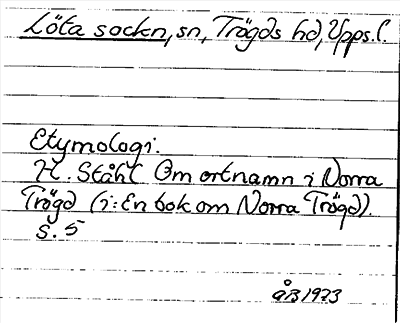 Löta sockn, sn, Trögds hd, Upps.l.
Etymologi.
H. Ståhl Om ortnamn i Norra
Trögd (i: En bok om Norra Trögd).
S. 5
ÅB 1973